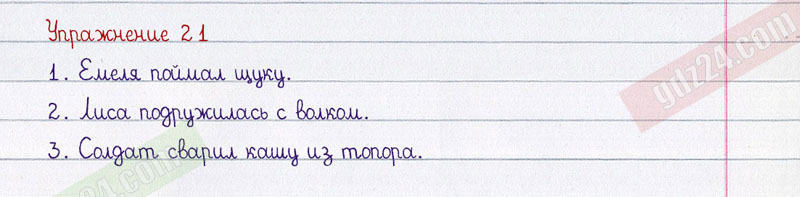 Упражнение 21
1. Емеля поймал щуку.
2. Лиса подружилась с волком.
3. Солдат сварил кашу из топора.
gdz24.com
gdz24.com